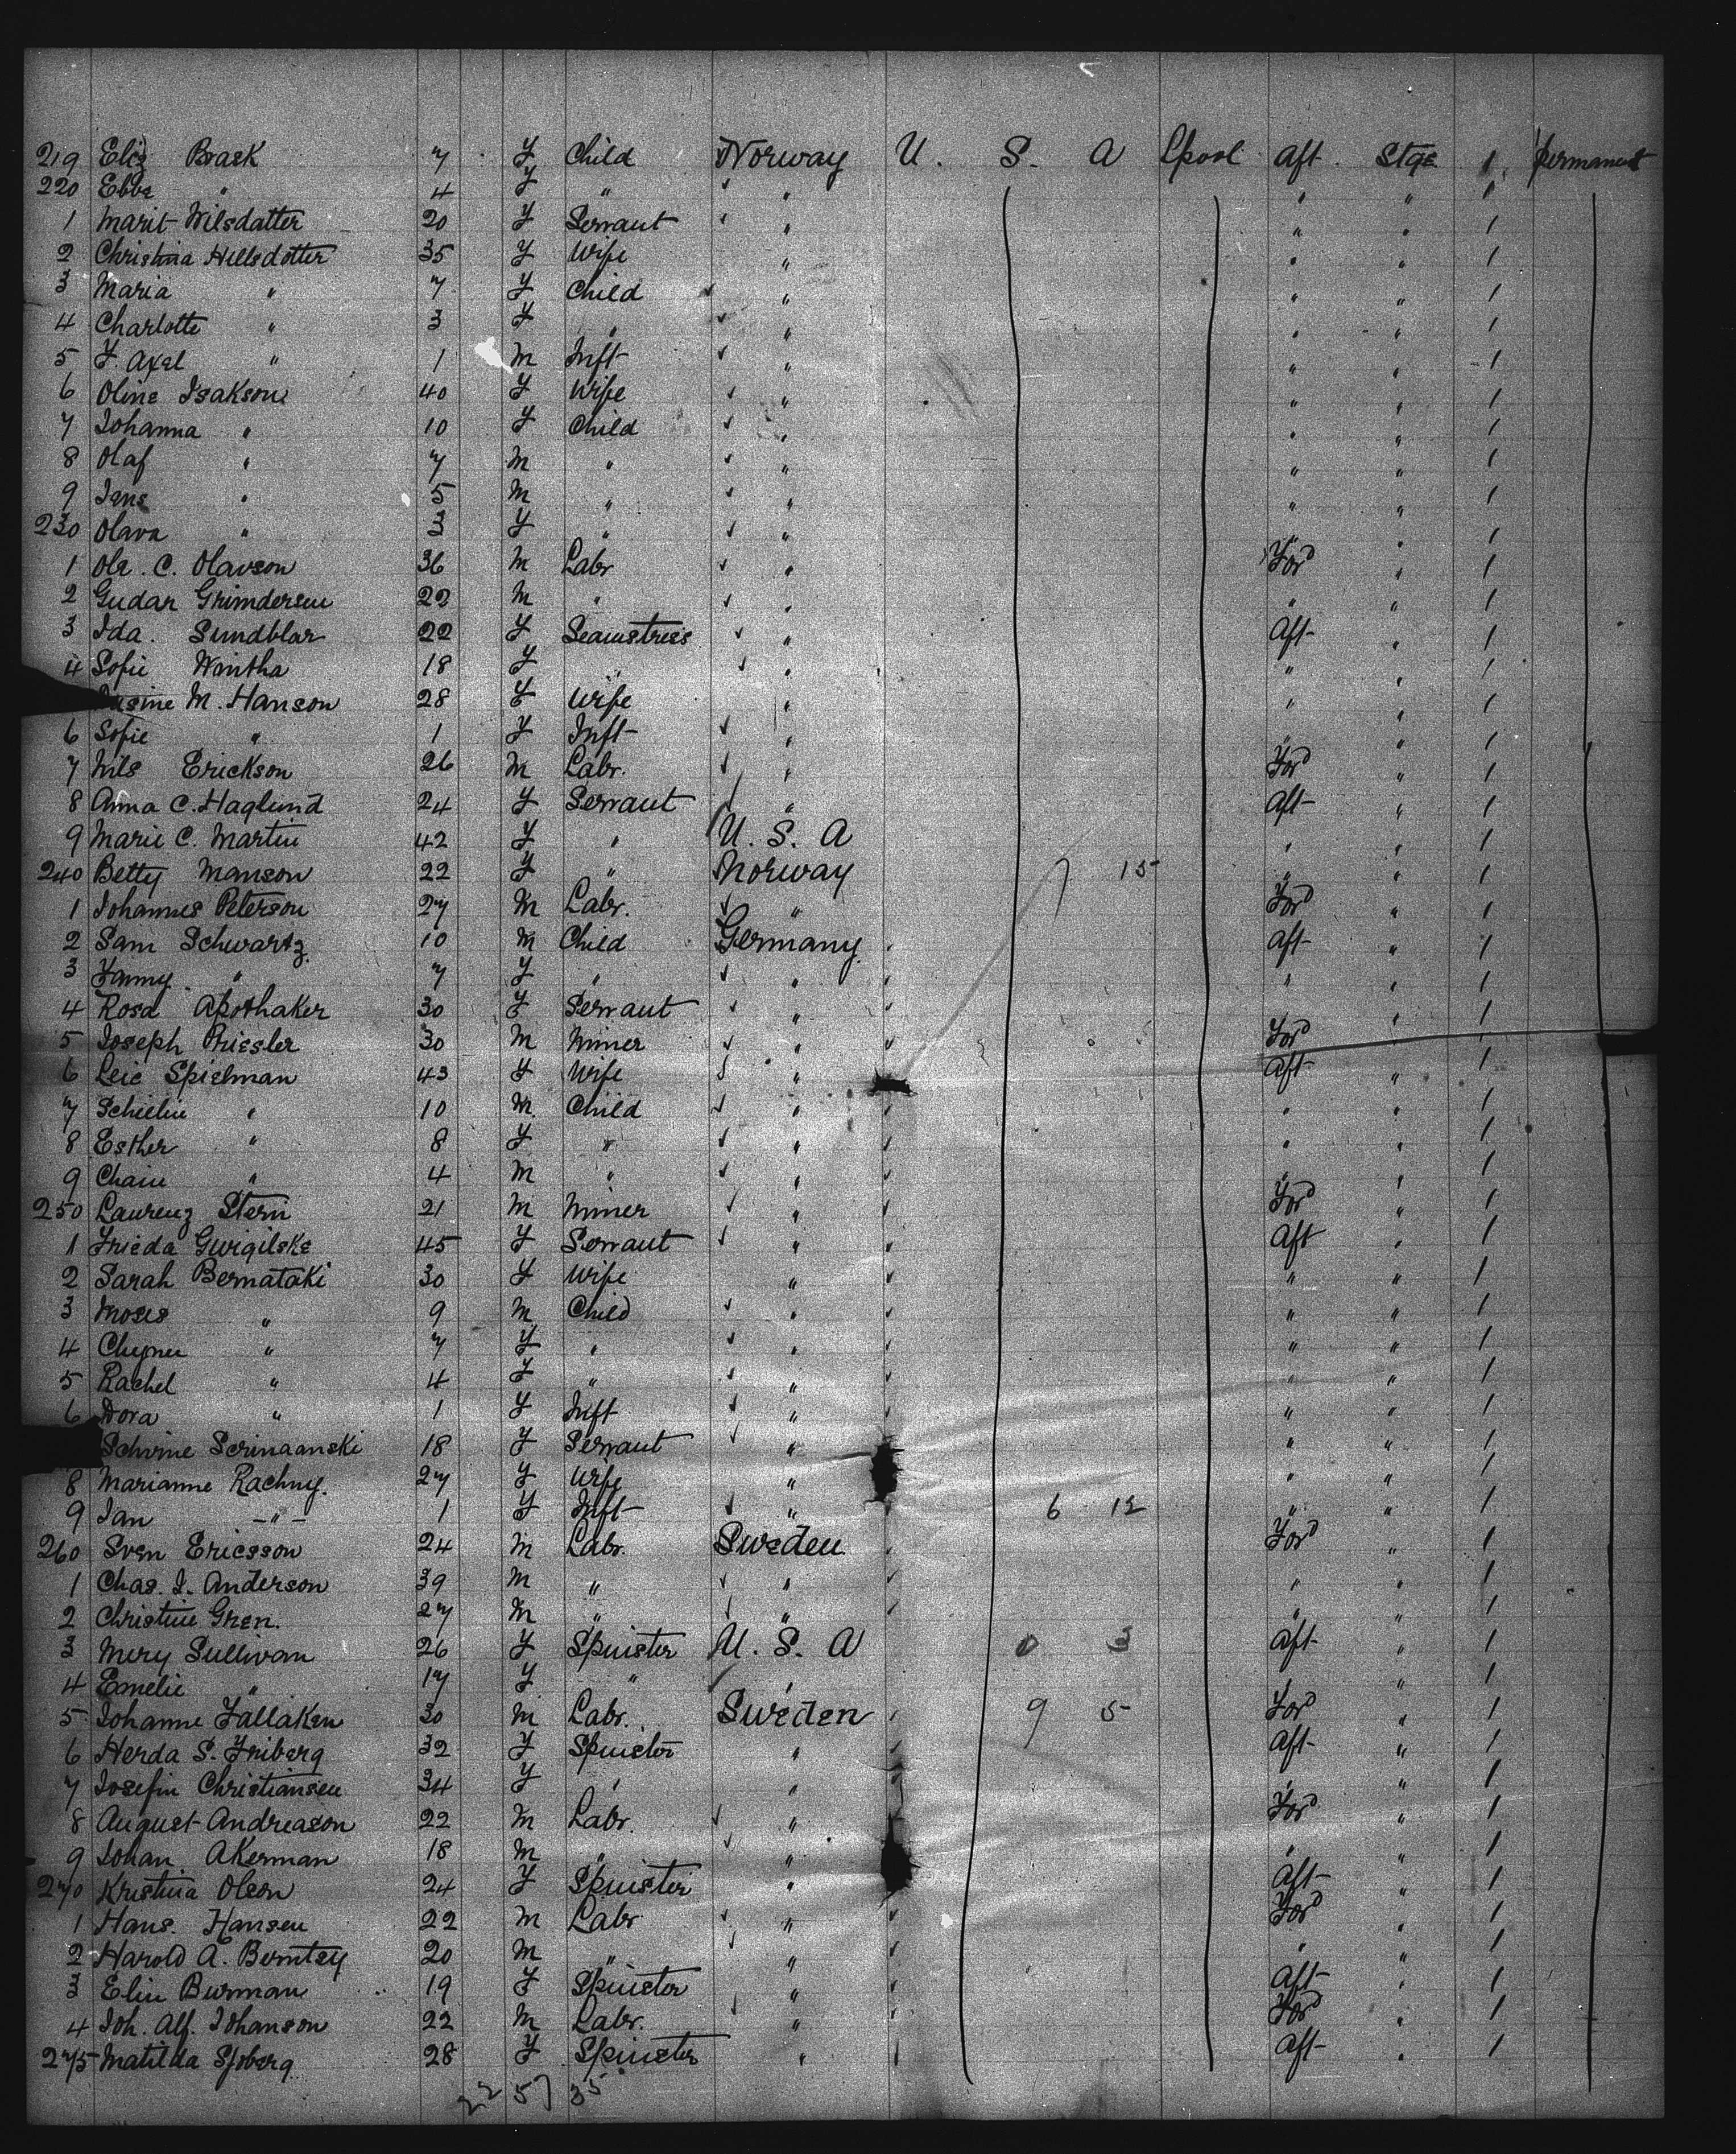 219 Eliz Brask 7 F Child Norway U. S. A Lpool Aft Stge 1 permanent
220 Ebba " 4 F " " " " 1
1 Marit Nilsdatter 20 F Servant " " " 1
2 Christina Hellsdotter 35 F Wife " " " 1
3 Maria " 7 F Child " " " 1
4 Charlotte " 3 F " " " " 1
5 F. Axel " 1 M Inft " " " 1
6 Oline Isakson 40 F Wife " " " 1
7 Johanna " 10 F Child " " " 1
8 Olaf " 7 M " " " " 1
9 Jens " 5 M " " " " 1
230 Olava " 3 F " " " " 1
1 Ole. C. Olavson 36 M Labr " For'd " 1
2 Gudar Grimdersen 22 M " " " " 1
3 Ida. Sundblar 22 F Seamstress " Aft " 1
4 Sofie Wintha 18 F " " " " 1
M. Hanson 28 F Wife " " " 1
6 Sofie " 1 F Inft " " " 1
7 Nils Erickson 26 M Labr. " For'd " 1
8 Anna C. Haglund 24 F Servant " Aft " 1
9 Marie C. Martin 42 F " U. S. A " " 1
240 Betty Manson 22 F " Norway 7 15 " " 1
1 Johannes Peterson 27 M Labr. " For'd " 1
2 Sam Schwartz 10 M Child Germany Aft " 1
3 Fanny " 7 F " " " " 1
4 Rosa Apothaker 30 F Servant " " " 1
5 Joseph Priesler 30 M Miner " For'd " 1
6 Leie Spielman 43 F Wife " Aft " 1
7 Schielin " 10 M. Child " " " 1
8 Esther " 8 F " " " " 1
9 Chain " 4 M " " " " 1
250 Laurenz Stern 21 M Miner " For'd " 1
1 Frieda Gurgilske 45 F Servant " Aft " 1
2 Sarah Bernataki 30 F Wife " " " 1
3 Moses " 9 M Child " " " 1
4 Chymen " 7 F " " " " 1
5 Rachel " 4 F " " " " 1
6 Dora " 1 F Inft " " " 1
Schvine Scrinaanski 18 F Servant " " " 1
8 Marianne Rachny. 27 F Wife " " " 1
9 Jan -"- 1 F Inft " 6 12 " " 1
260 Sven Ericsson 24 M Labr. Sweden For'd " 1
1 Chas. J. Anderson 39 M " " " " 1
2 Christine Gren. 27 M " " " " 1
3 Mery Sullivan 26 F Spinster U. S. A 0 3 Aft " 1
4 Emelie " 17 F " " " " 1
5 Johanne Fallaken 30 M Labr. Sweden 9 5 For'd " 1
6 Herda S. Friberg 32 F Spinster " Aft " 1
7 Josefin Christiansen 34 F " " " " 1
8 August Andreason 22 M Labr. " For'd " 1
9 Johan Akerman 18 M " " " " 1
270 Kristina Olson 24 F Spinster " Aft " 1
1 Hans. Hansen 22 M Labr " For'd " 1
2 Harold A. Berntsy 20 M " " " " 1
3 Elin Burman 19 F Spinster " Aft " 1
4 Joh. Alf. Johanson 22 M Labr. " For'd " 1
275 Matilda Sjoberg 28 F Spinster " Aft " 1
22 57 35